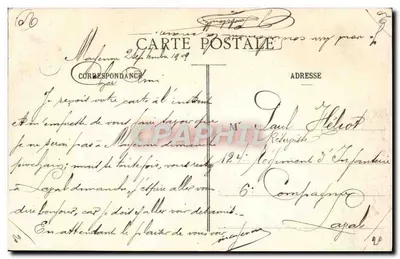 CARTE POSTALE
CORRESPONDANCE
ADRESSE
Mayenne 2 Septembre 1909
Cher Ami
Je reçois votre carte à l'instant
et m'empresse de vous faire savoir que
je ne serai pas à Mayenne dimanche
prochain; mais si toutefois, vous restez
à Laval dimanche j'espère aller vous
dire bonjour, car je dois y aller voir
En attendant le plaisir de vous voir
M Paul Héliot
Réserviste
124e Régiment d'Infanterie
6e Compagnie
Laval